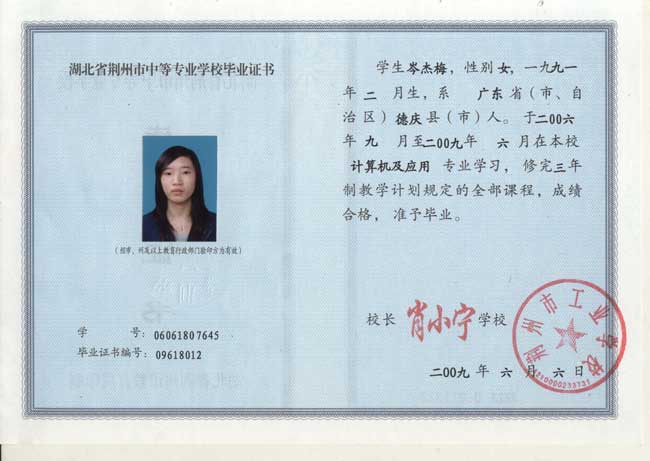 湖北省荆州市中等专业学校毕业证书
(经市、州及以上教育行政部门验印方为有效)
学 号: 06061807645
毕业证书编号: 09618012
学生岑杰梅, 性别女, 一九九一
年 二 月生, 系 广东省(市、自
治区)德庆县(市)人。于二00六
年 九 月至二00九年 六 月在本校
计算机及应用 专业学习, 修完三年
制教学计划规定的全部课程, 成绩
合格, 准予毕业。
校长 肖小宁 学校
荆州市工业学校
二00九 年 六 月 六 日